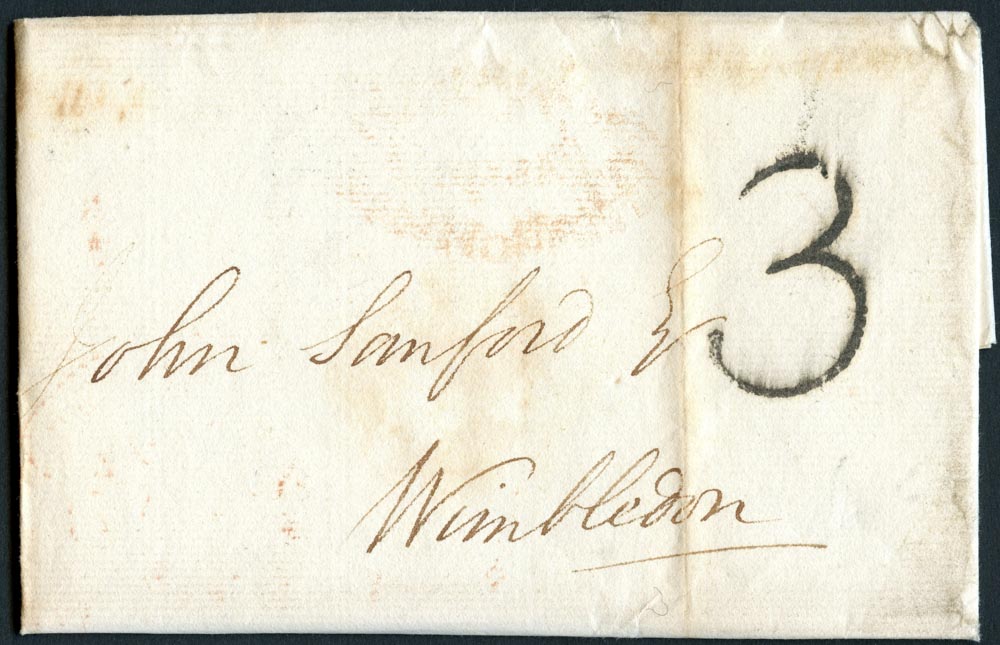 John Sanford Esq
3
Wimbledon